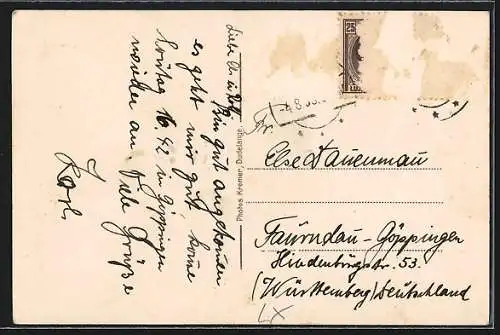 Bin gut angekommen
es geht mir gut, komme
Sonntag 16.42 in Göppingen
wieder an. Viele Grüße
Karl
Photos Kremer, Dudelange.
25
-4.8.
Fr.
Else Dauenmau
Faurndau-Göppingen
Hindenburgstr. 53.
(Württemberg) Deutschland